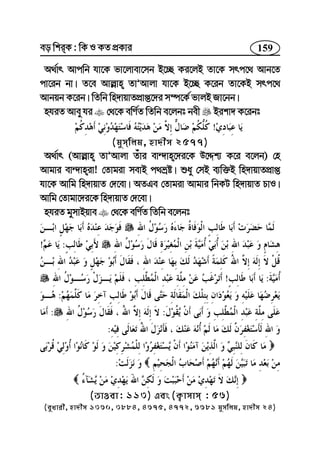 বড় শির্ক : কি ও কত প্রকার 159
অর্থাৎ আপনি যাকে ভালোবাসেন ইচ্ছে করলেই তাকে সৎপথে আনতে
পারেন না। তবে আল্লাহ্ তা'আলা যাকে ইচ্ছে করেন তাকেই সৎপথে
আনয়ন করেন। তিনি হিদায়াতপ্রাপ্তদের সম্পর্কে ভালই জানেন।
হযরত আবু যর ﷺ থেকে বর্ণিত তিনি বলেনঃ নবী ﷺ ইরশাদ করেনঃ
يَا عِبَادِيْ! كُلُّكُمْ ضَالٌّ إِلاَّ مَنْ هَدَيْتُهُ، فَاسْتَهْدُوْنِيْ أَهْدِكُمْ
(মুসলিম, হাদীস ২৫৭৭)
অর্থাৎ (আল্লাহ্ তা'আলা তাঁর বান্দাহ্‌দেরকে উদ্দেশ্য করে বলেন) হে
আমার বান্দাহ্‌রা! তোমরা সবাই পথভ্রষ্ট। শুধু সেই ব্যক্তিই হিদায়াতপ্রাপ্ত
যাকে আমি হিদায়াত দেবো। অতএব তোমরা আমার নিকট হিদায়াত চাও।
আমি তোমাদেরকে হিদায়াত দেবো।
হযরত মুসাইয়াব ﷺ থেকে বর্ণিত তিনি বলেনঃ
لَمَّا حَضَرَتْ أَبَا طَالِبٍ الْوَفَاةُ جَاءَهُ رَسُوْلُ اللهِ ﷺ فَوَجَدَ عِنْدَهُ أَبَا جَهْلِ ابْـنَ
هِشَامٍ وَ عَبْدَ اللهِ بْنَ أَبِيْ أُمَيَّةَ بْنِ الْمُغِيْرَةِ، قَالَ رَسُوْلُ اللهِ ﷺ لأَبِيْ طَالِبٍ: يَا عَمِّ!
قُلْ لاَ إِلَهَ إِلاَّ اللهُ ، كَلِمَةً أَشْهَدُ لَكَ بِهَا عِنْدَ اللهِ ، فَقَالَ أَبُوْ جَهْلٍ وَ عَبْدُ اللهِ بْـنُ
أَبِيْ أُمَيَّةَ: يَا أَبَا طَالِبٍ! أَتَرْغَبُ عَنْ مِلَّةِ عَبْدِ الْمُطَّلِبِ ، فَلَمْ يَـزَلْ رَسُـوْلُ اللهِ ﷺ
يَعْرِضُهَا عَلَيْهِ وَ يَعُوْدَانِ بِتِلْكَ الْمَقَالَةِ حَتَّى قَالَ أَبُوْ طَالِبٍ آخِرَ مَا كَلَّمَهُمْ: هُـوَ
عَلَى مِلَّةِ عَبْدِ الْمُطَّلِبِ ، وَ أَبَى أَنْ يَّقُوْلَ: لاَ إِلَهَ إِلاَّ اللهُ ، فَقَالَ رَسُوْلُ اللهِ ﷺ: أَمَا
وَ اللهِ لأَسْتَغْفِرَنَّ لَكَ مَا لَمْ أُنْهَ عَنْكَ ، فَأَنْزَلَ اللهُ تَعَالَى فِيْهِ:
﴿ مَا كَانَ لِلنَّبِيِّ وَ الَّذِيْنَ آمَنُوْا أَنْ يَّسْتَغْفِرُوْا لِلْمُشْرِكِيْنَ وَ لَوْ كَانُوْا أُوْلِيْ قُرْبَى
مِنْ بَعْدِ مَا تَبَيَّنَ لَهُمْ أَنَّهُمْ أَصْحَابُ الْجَحِيْمِ ﴾ وَ نَزَلَتْ:
﴿ إِنَّكَ لاَ تَهْدِيْ مَنْ أَحْبَبْتَ وَ لَكِنَّ اللهَ يَهْدِيْ مَنْ يَّشَآءُ ﴾
(তাওবা : ১১৩) এবং (ক্বাসাস্ : ৫৬)
(বুখারী, হাদীস ১৩৬০, ৩৮৮৪, ৪৬৭৫, ৪৭৭২, ৬৬৮১ মুসলিম, হাদীস ২৪)